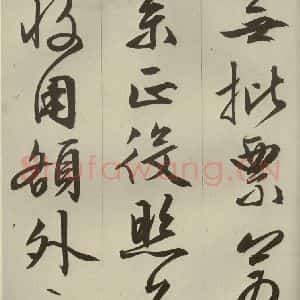 無批票若
系正從照
收用額外
Shufawang.CN